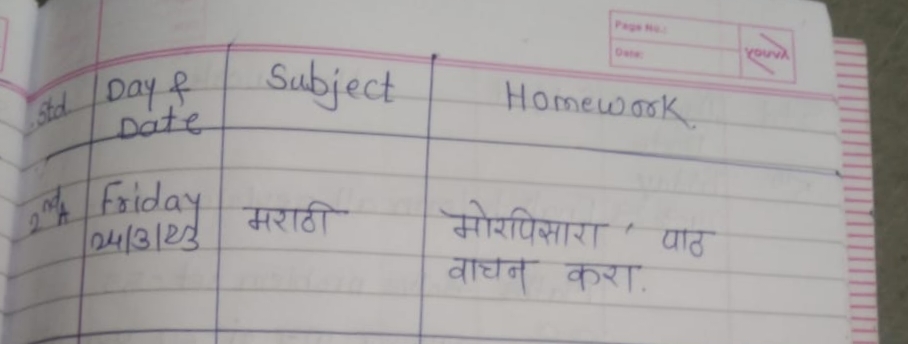 Page No.:
Date:
YOUVA
Std. Day & Subject Homework.
Date
2nd A Friday मराठी मोरपिसारा ' पाठ
24/3/23 वाचन करा.